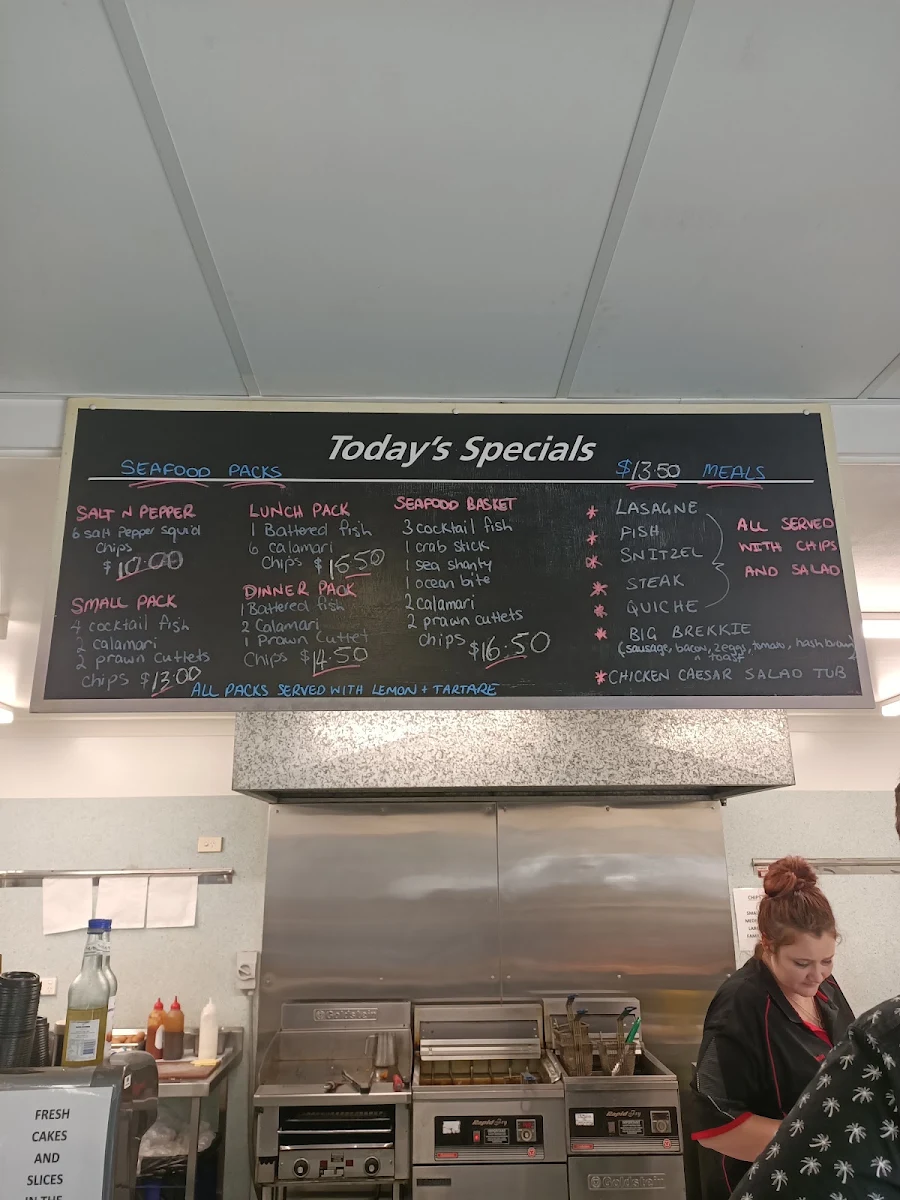 Today's Specials
SEAFOOD PACKS
SALT N PEPPER
6 salt Pepper squid
Chips
$10.00
SMALL PACK
4 cocktail fish
2 calamari
2 prawn cutlets
chips $13.00
LUNCH PACK
1 Battered fish
6 calamari
Chips $15.50
DINNER PACK
1 Battered fish
2 Calamari
1 Prawn Cutlet
Chips $14.50
SEAFOOD BASKET
3 cocktail fish
1 crab stick
1 sea shanty
1 ocean bite
2 calamari
2 prawn cutlets
chips $16.50
ALL PACKS SERVED WITH LEMON + TARTARE
$13.50 MEALS
* LASAGNE
* FISH
* SNITZEL
* STEAK
* QUICHE
ALL SERVED
WITH CHIPS
AND SALAD
* BIG BREKKIE
(sausage, bacon, 2eggs, tomato, hash brown)
^ toast
* CHICKEN CAESAR SALAD TUB
Goldstein
Rapid Fry
Rapid Fry
Goldstein
CHIPS
FRESH
CAKES
AND
SLICES
IN THE